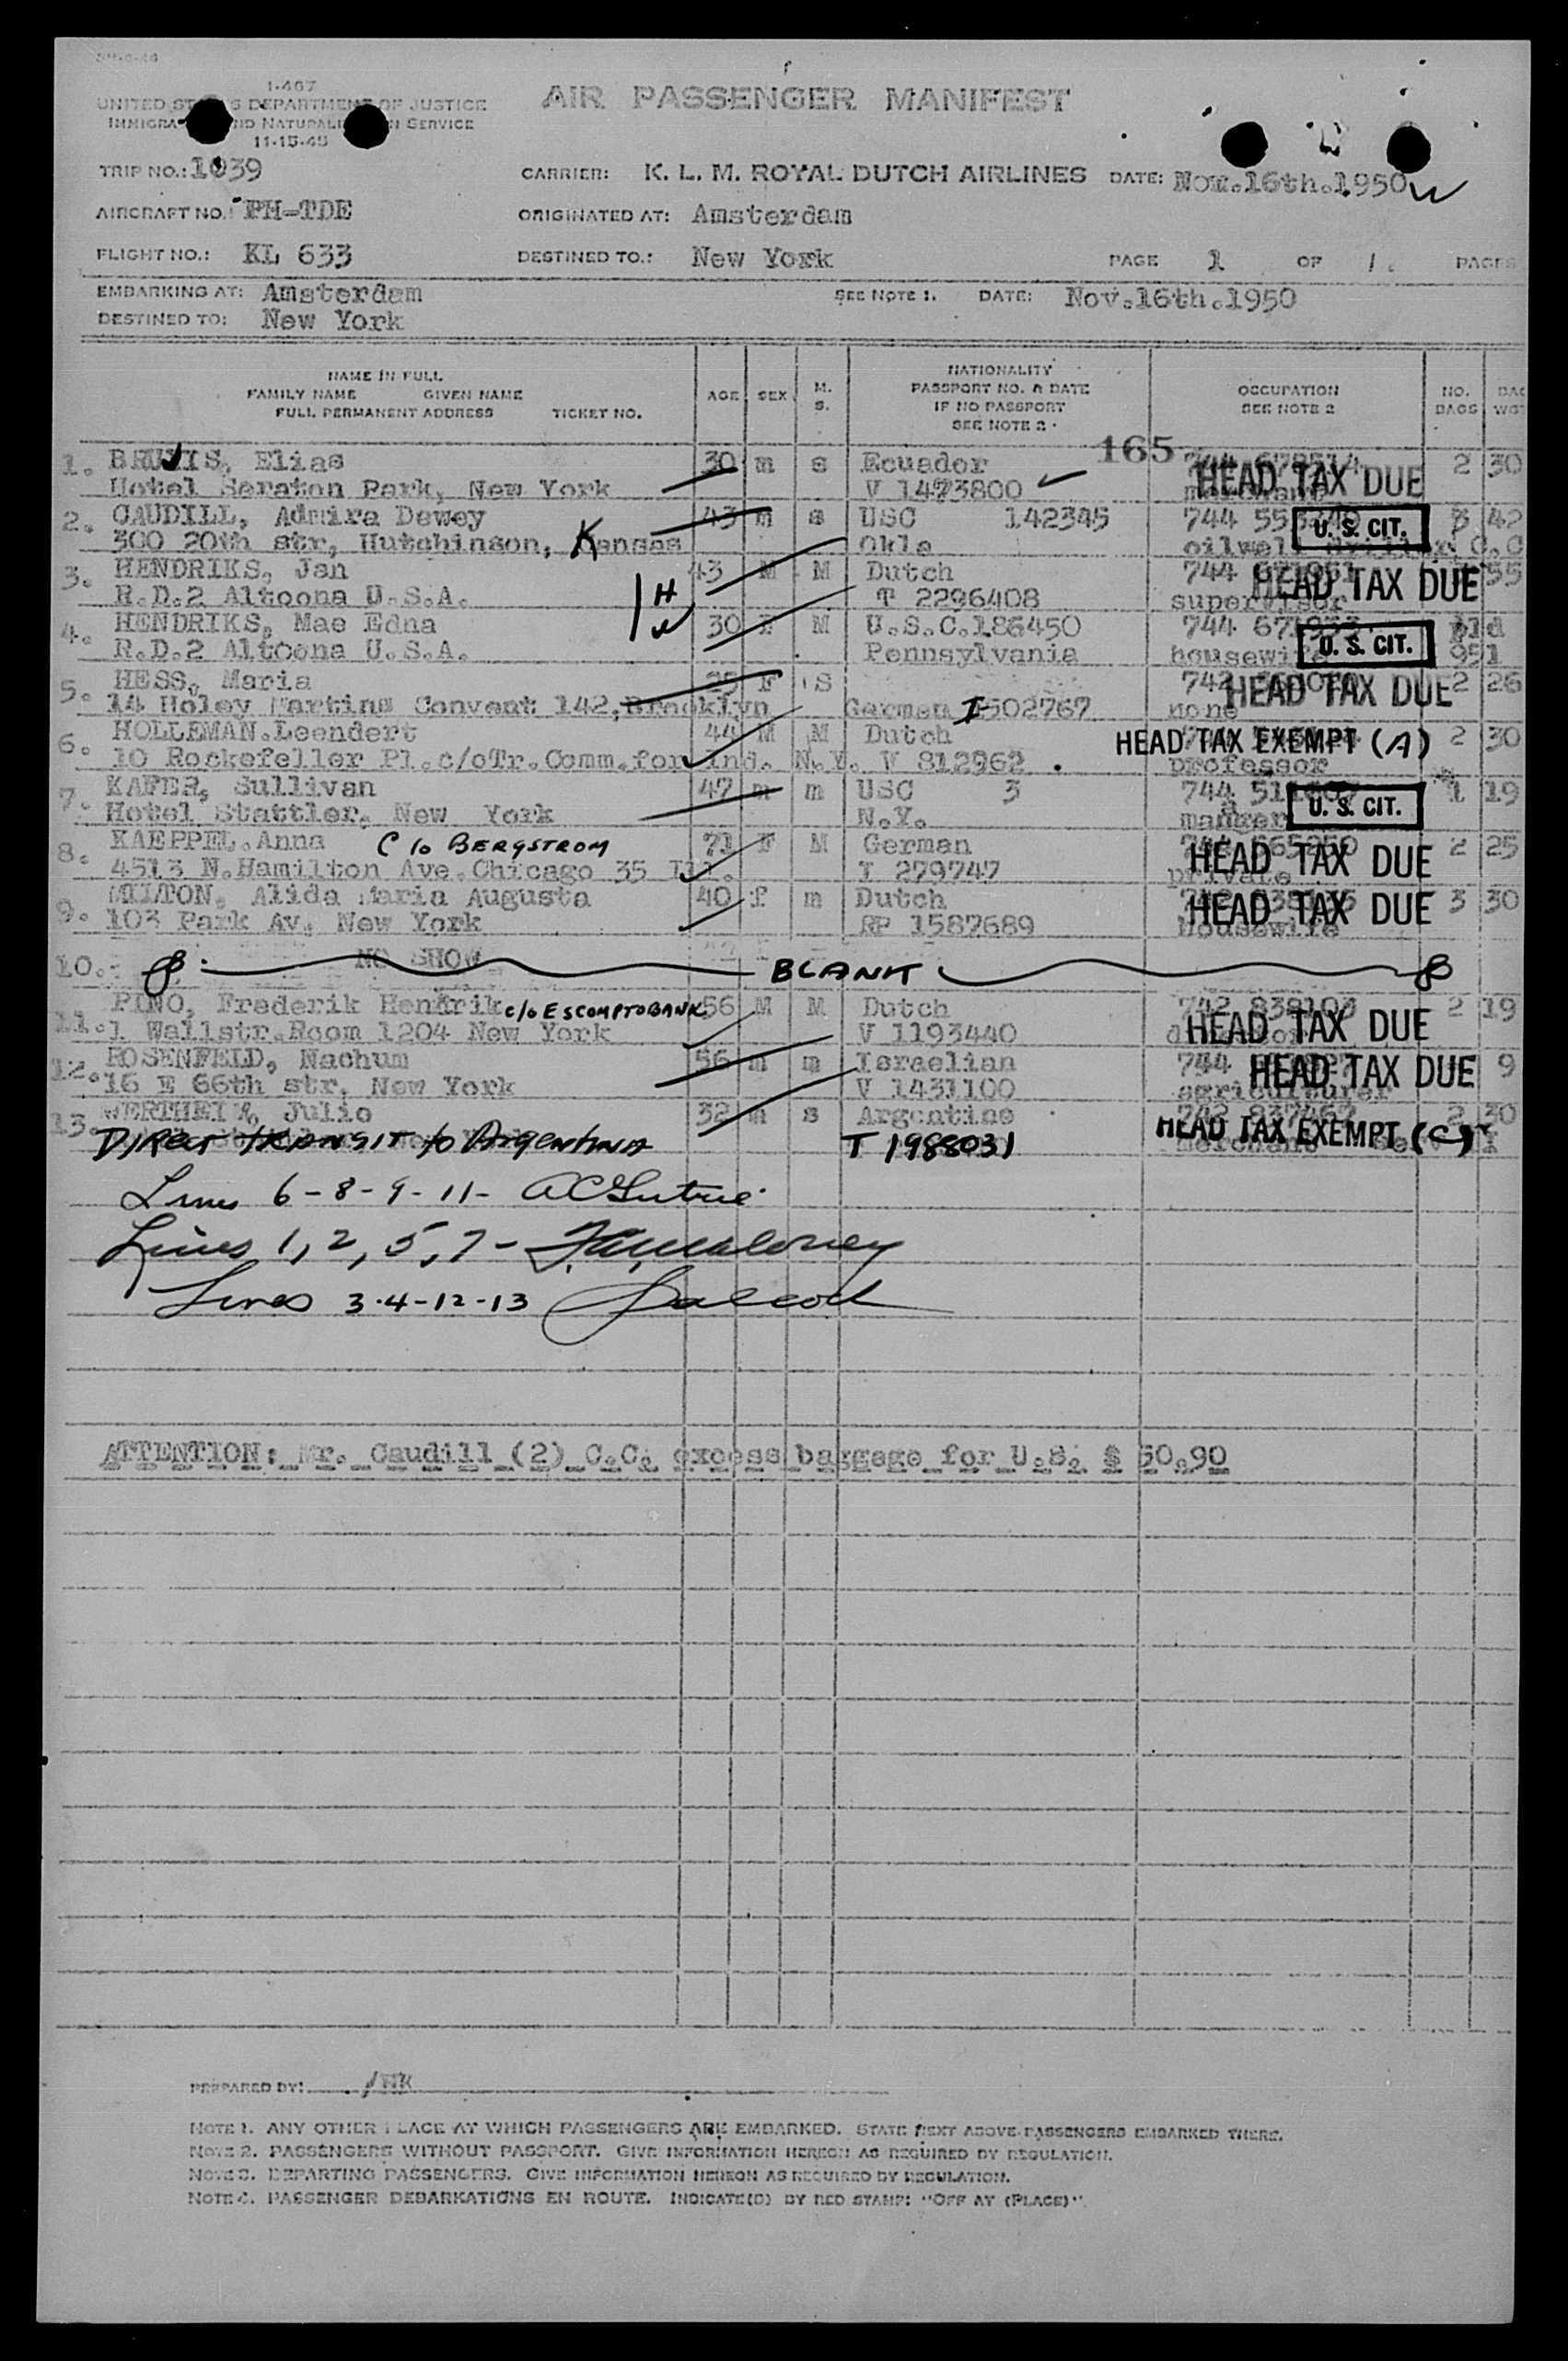 1-467
UNITED STATES DEPARTMENT OF JUSTICE
IMMIGRATION AND NATURALIZATION SERVICE
11-15-45
AIR PASSENGER MANIFEST
TRIP NO.: 1039 CARRIER: K. L. M. ROYAL DUTCH AIRLINES DATE: Nov.16th.1950
AIRCRAFT NO.: PH-TDE ORIGINATED AT: Amsterdam
FLIGHT NO.: KL 633 DESTINED TO.: New York PAGE 1 OF 1. PAGES
EMBARKING AT: Amsterdam SEE NOTE 1. DATE: Nov.16th.1950
DESTINED TO: New York
NAME IN FULL
FAMILY NAME GIVEN NAME
FULL PERMANENT ADDRESS TICKET NO. AGE SEX M. S. NATIONALITY PASSPORT NO. & DATE IF NO PASSPORT SEE NOTE 2. OCCUPATION SEE NOTE 2 NO. BAGS BAG WGT
165
1. Elias 30 m s Ecuador HEAD TAX DUE 2 30
Hotel Seraton Park, New York V 1473800
2. CAUDILL, Admira Dewey 43 m s USC 142345 744 U. S. CIT. 3 42
300 20th str, Hutchinson, Kansas Okla oilwell C.C
3. HENDRIKS, Jan 43 M M Dutch 744 HEAD TAX DUE 55
R.D.2 Altoona U.S.A. H T 2296408 supervisor
4. HENDRIKS, Mae Edna W 30 F M U.S.C.186450 744 U. S. CIT.
R.D.2 Altoona U.S.A. Pennsylvania housewife
5. HESS, Maria 25 F S 742 HEAD TAX DUE 2 26
14 Holey Martins Convent 142, Brooklyn German 502767 none
6. HOLLEMAN.Leendert 44 M M Dutch HEAD TAX EXEMPT (A) 2 30
10 Rockefeller Pl.c/oTr.Comm.for Ind. N.Y. V 812962 professor
7. KAFER, Sullivan 47 m m USC 3 744 U. S. CIT. 1 19
Hotel Stattler, New York N.Y. manger
8. KAEPPEL.Anna C/o BERGSTROM 71 F M German HEAD TAX DUE 2 25
4513 N.Hamilton Ave.Chicago 35 Ill. T 279747 private
9. MILTON, Alida Maria Augusta 40 f m Dutch HEAD TAX DUE 3 30
103 Park Av, New York RP 1587689 housewife
10. NO SHOW BLANK
11. PINO, Frederik Hendrik c/o ESCOMPTOBANK 56 M M Dutch 742 838103 HEAD TAX DUE 2 19
1 Wallstr.Room 1204 New York V 1193440
12. ROSENFELD, Nachum 56 m m Israelian 744 HEAD TAX DUE 9
16 E 66th str, New York V 1431100 agriculturer
13. WERTHEIM, Julio 32 m s Argentine HEAD TAX EXEMPT (C) 2 30
DIRECT TRANSIT to Argentina T 1988031 merchant
Lines 6-8-9-11-
Lines 1, 2, 5, 7-
Lines 3.4-12-13
ATTENTION: Mr. Caudill (2) C.C. excess baggage for U.S. $ 50.90
PREPARED BY:
NOTE 1. ANY OTHER PLACE AT WHICH PASSENGERS ARE EMBARKED. STATE NEXT ABOVE PASSENGERS EMBARKED THERE.
NOTE 2. PASSENGERS WITHOUT PASSPORT. GIVE INFORMATION HEREON AS REQUIRED BY REGULATION.
NOTE 3. DEPARTING PASSENGERS. GIVE INFORMATION HEREON AS REQUIRED BY REGULATION.
NOTE 4. PASSENGER DEBARKATIONS EN ROUTE. INDICATE(D) BY RED STAMP: "OFF AT (PLACE)".